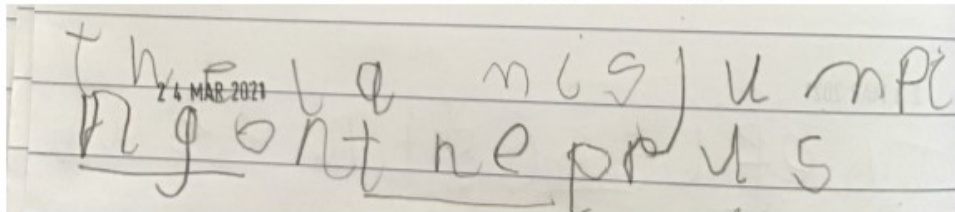 the la nis jumPi
24 MAR 2021
ngont he prus